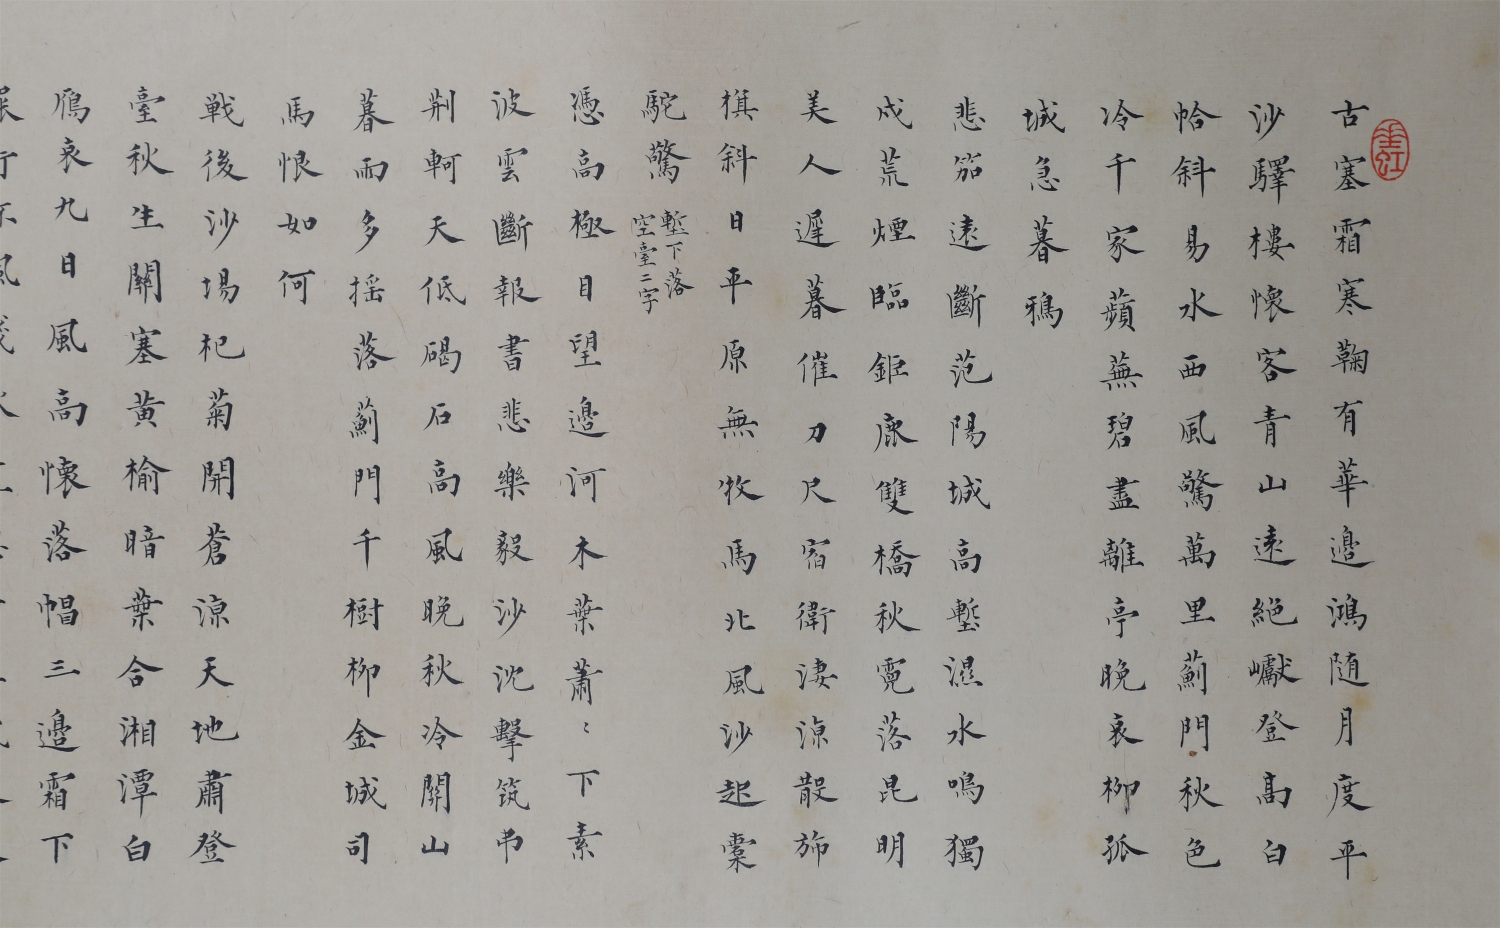 古塞霜寒鞠有華邊鴻随月度平
沙驛樓懷客青山遠絕巘登髙白
帢斜易水西風驚萬里薊門秋色
冷千家蘋蕪碧盡離亭晚衰柳孤
城急暮鴉
悲笳遠斷范陽城高塹濕水鳴獨
戍荒煙臨鉅鹿雙橋秋霓落昆明
美人遲暮催刀尺宿衛淒涼散旆
旗斜日平原無牧馬北風沙起橐
駝驚
塹下落
空臺二字
憑高極目望邊河木葉蕭〻下素
波雲斷報書悲樂毅沙沈擊筑弔
荆軻天低碣石高風晚秋冷關山
暮雨多揺落薊門千樹柳金城司
馬恨如何
戰後沙場杞菊開蒼涼天地肅登
臺秋生關塞黃榆暗葉合湘潭白
鴈哀九日風高懷落帽三邊霜下